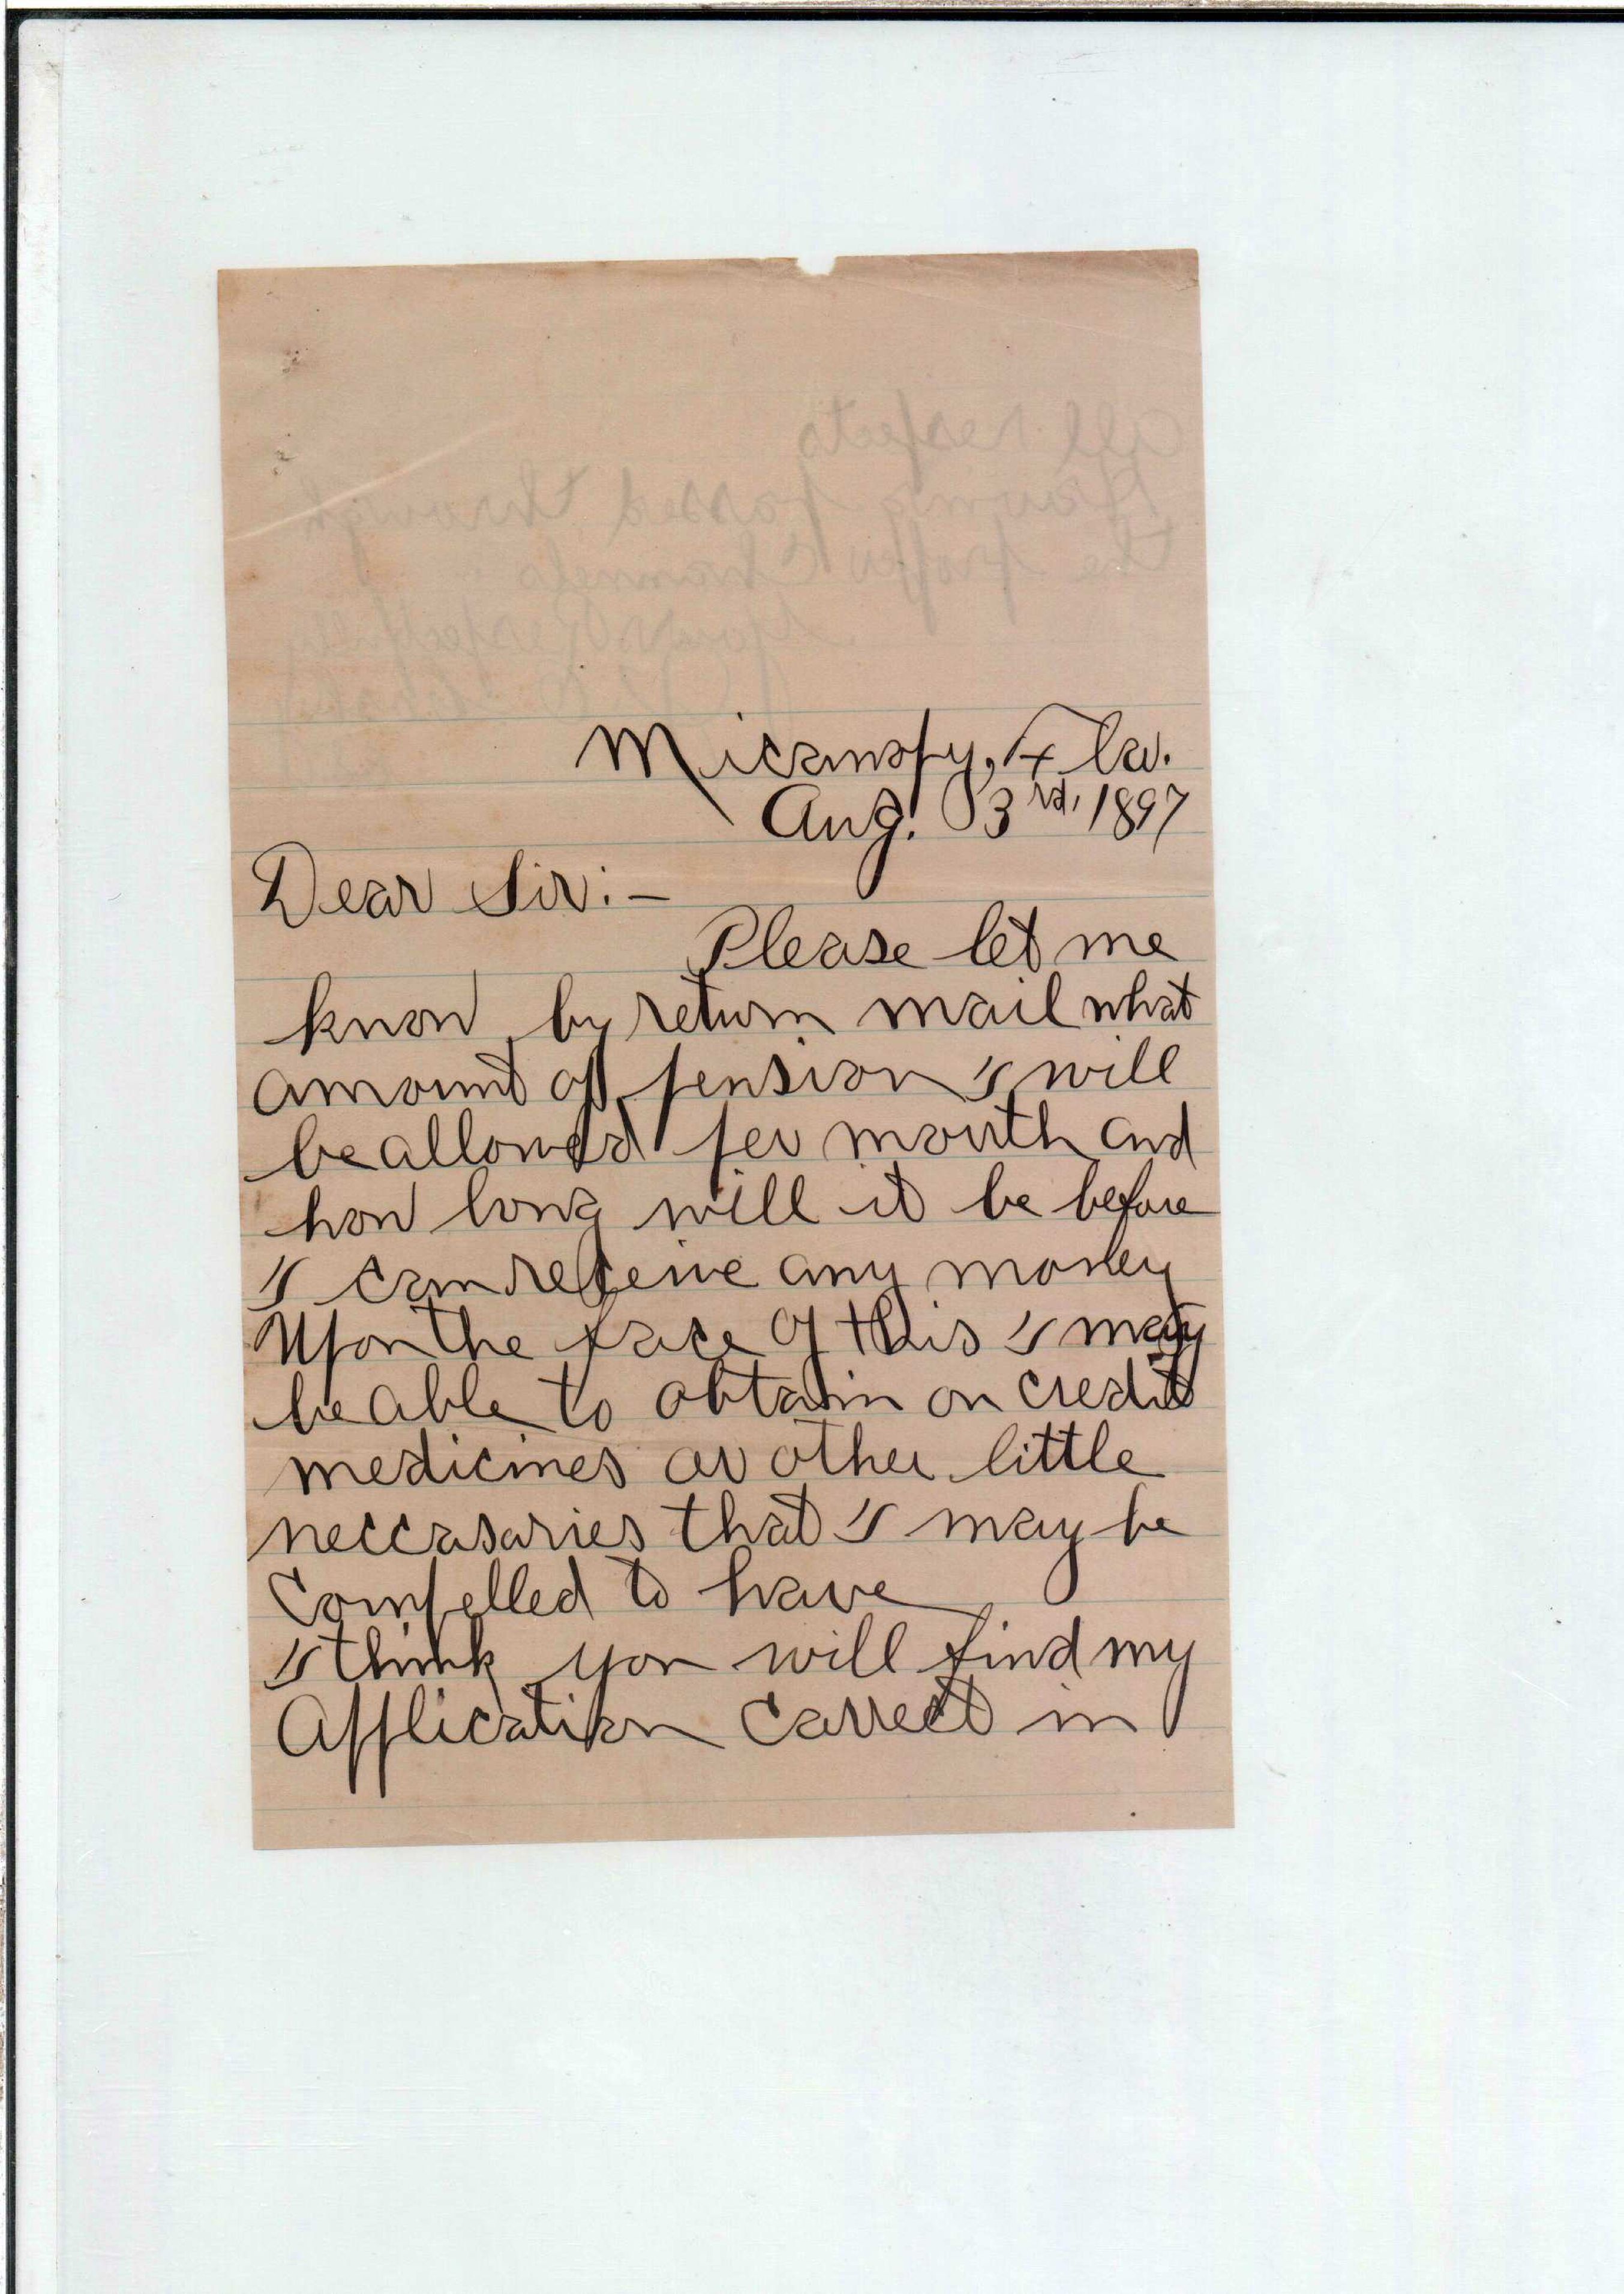 Micanopy, Fla.
Aug. 3rd, 1897
Dear Sir:—
Please let me
know by return mail what
amount of pension I will
be allowed per month and
how long will it be before
I can receive any money
Upon the face of this I may
be able to obtain on credit
medicines or other little
neccasaries that I may be
compelled to have
I think you will find my
Application correct in
all respects
Having passed through
the proper channels
Yours Respectfully